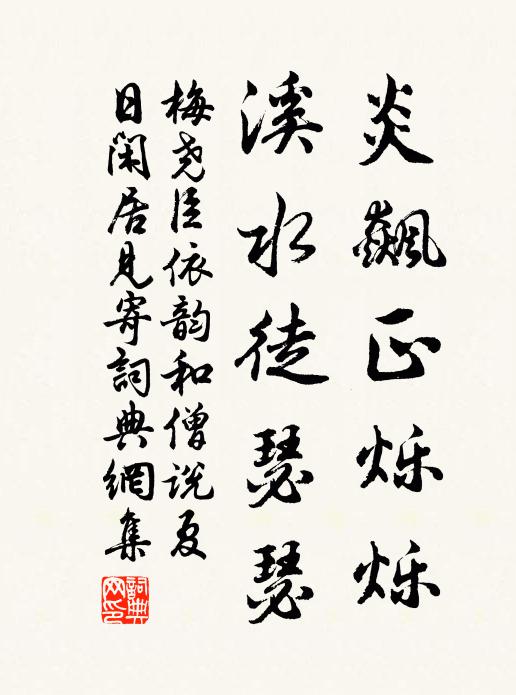 炎飙正烁烁
溪水徒瑟瑟
梅尧臣依韵和僧说夏
日闲居见寄詞典網集
詞典網印